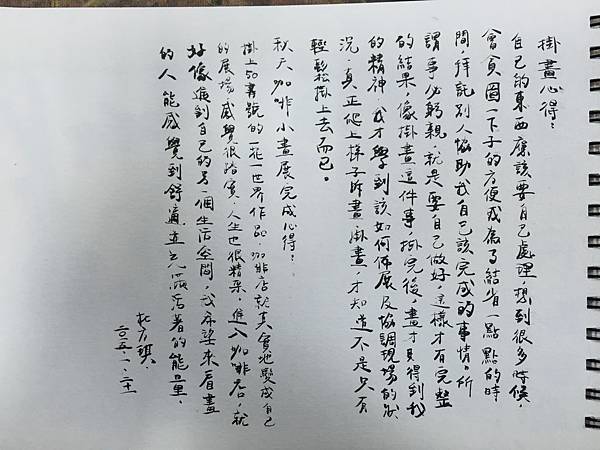 掛畫心得：
自己的東西應該要自己處理，想到很多時候，
會貪圖一下子的方便或為了節省一點點的時
間，拜託別人協助我自己該完成的事情。所
謂事必躬親，就是要自己做好，這樣才有完整
的結果，像掛畫這件事，掛完後，畫才見得到我
的精神，我才學到該如何佈展及協調現場的狀
況，真正爬上梯子拆畫掛畫，才知道不是只有
輕鬆掛上去而已。
秋天咖啡小畫展完成心得：
掛上50号的一花一世界作品，咖啡店就真實地變成自己
的展場，感覺很踏實，人生也很精采，進入咖啡店，就
好像進到自己的另一個生活空間，我希望來看畫
的人能感覺到舒適，並且活著的能量，
二〇五、一、二十